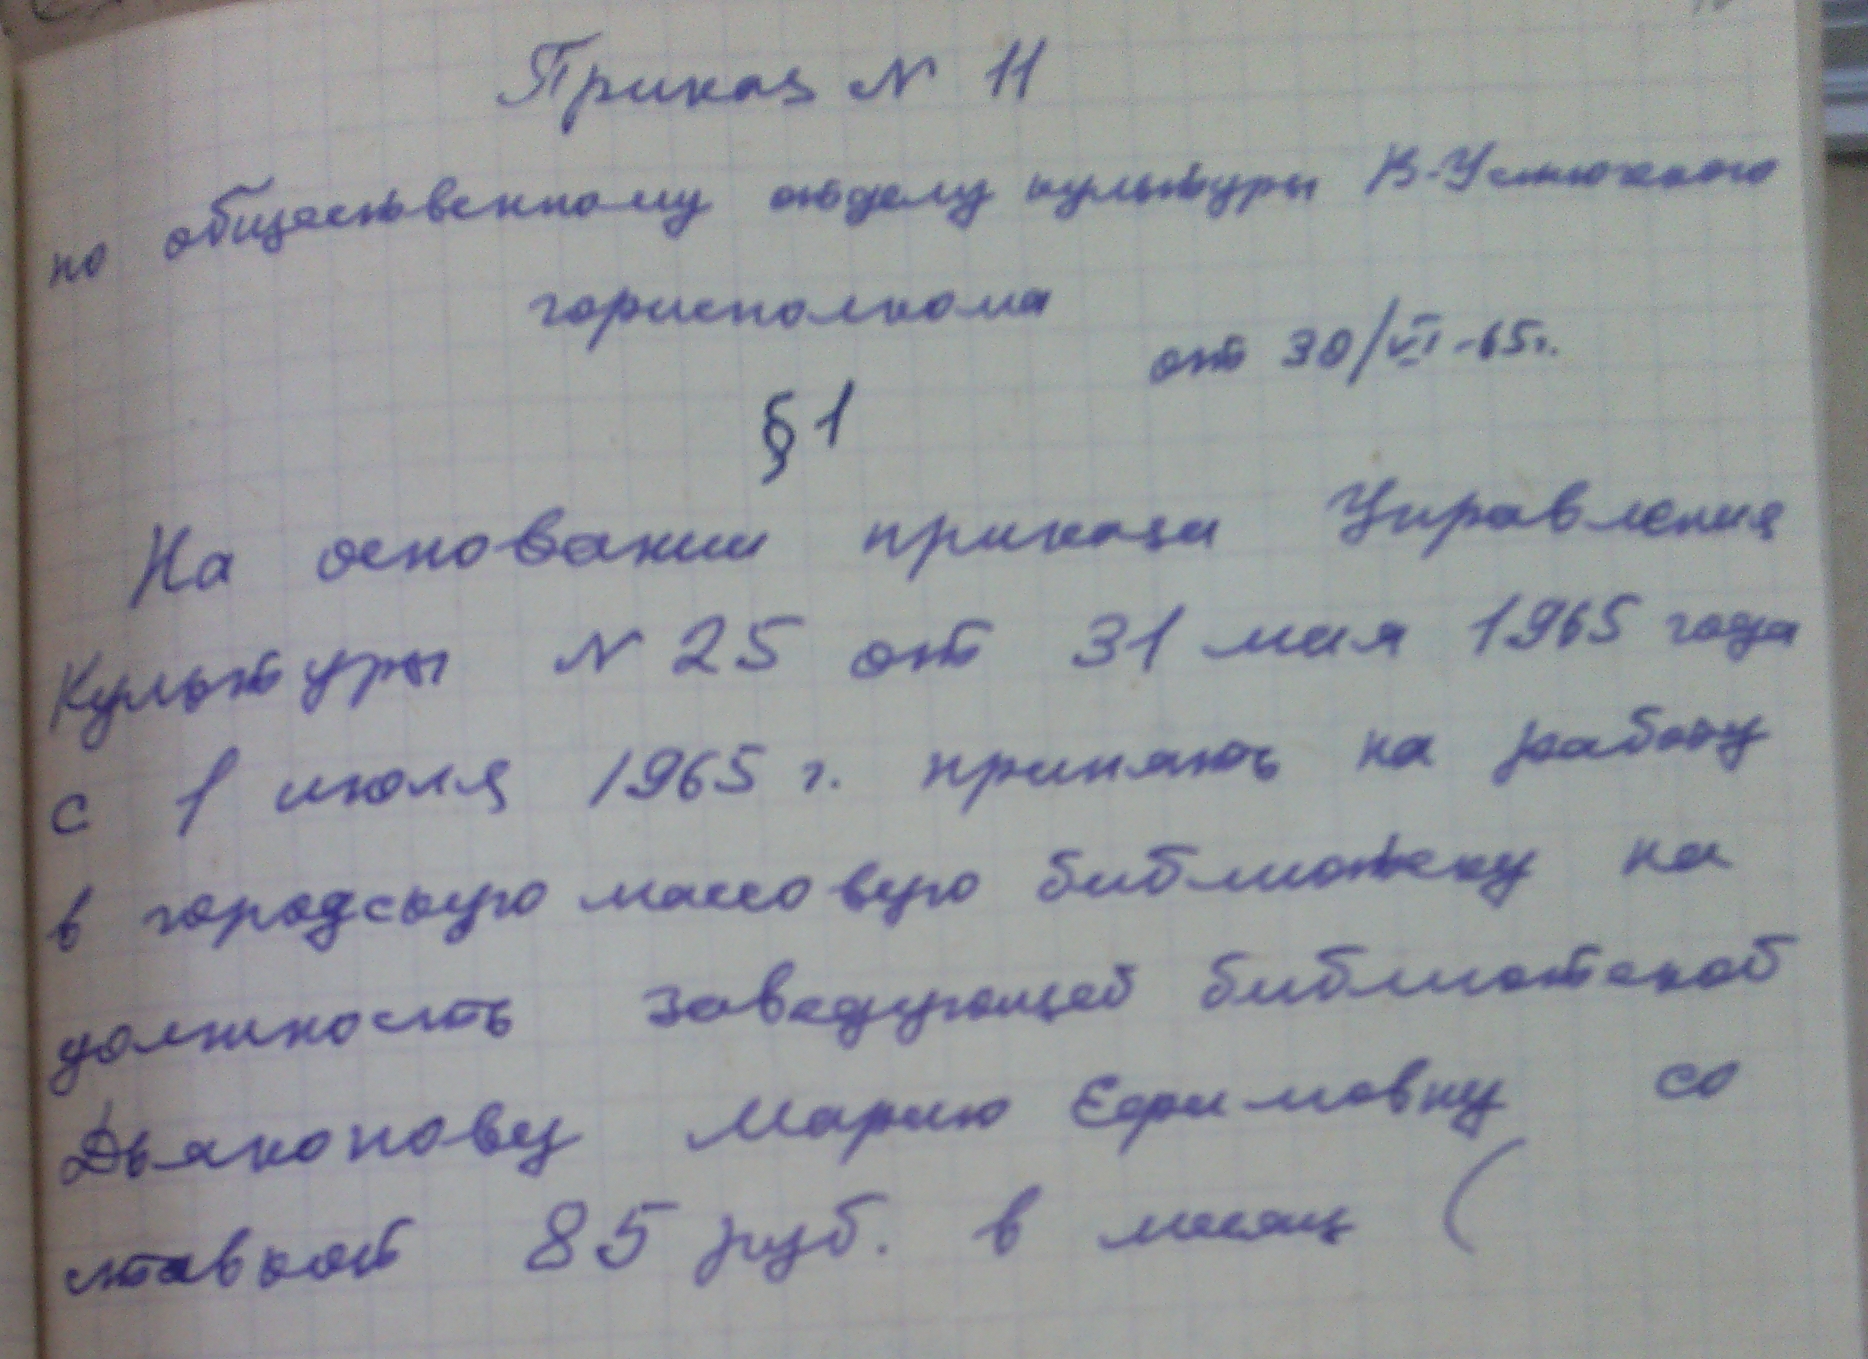 Приказ N 11
по общественному отделу культуры В-Устюжского
горисполкома
от 30/VI-65г.
§1
На основании приказа Управления
Культуры N 25 от 31 мая 1965 года
с 1 июля 1965 г. принять на работу
в городскую массовую библиотеку на
должность заведующей библиотекой
Дьяконову Марию Ефимовну со
ставкой 85 руб. в месяц (